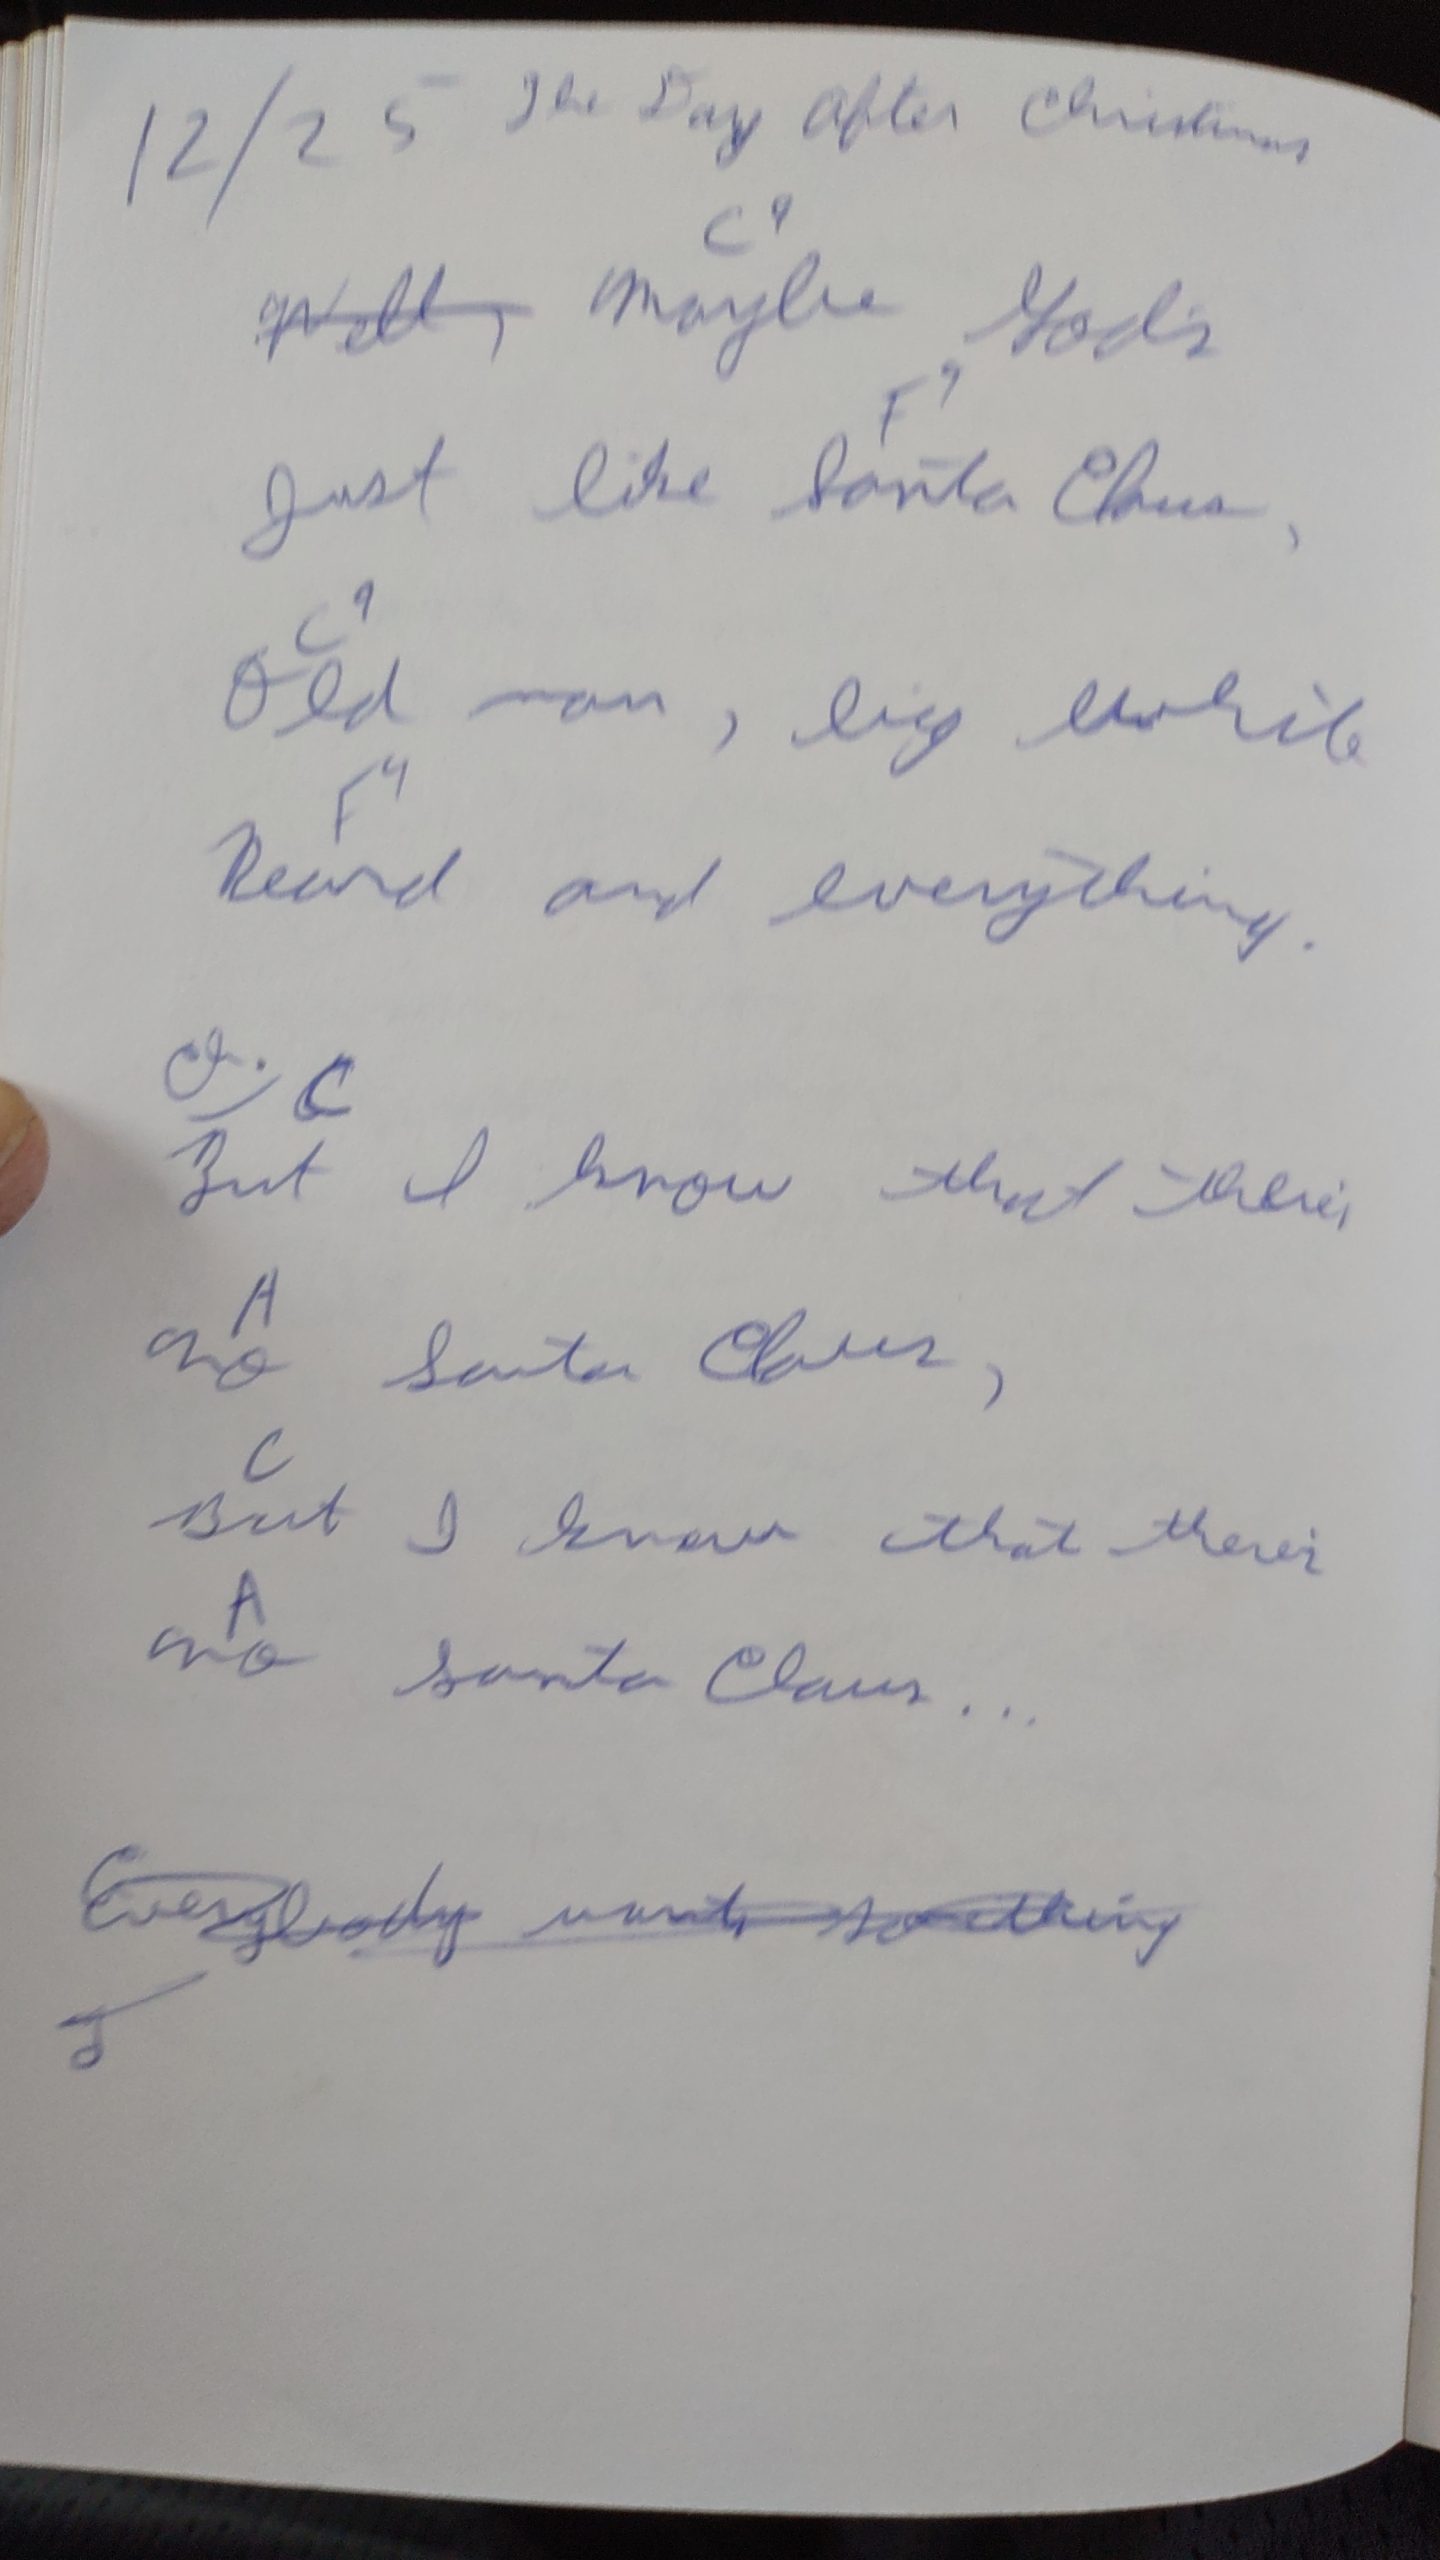 12/25 The Day After Christmas
C9
Well, Maybe God's
F9
Just like Santa Claus,
C9
Old man, big white
F9
Beard and everything.
Ch. C
But I know that there's
A
No Santa Claus,
C
But I know that there's
A
No Santa Claus...
Everybody wants something